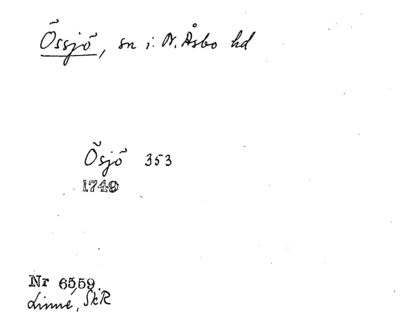 Össjö, sn i. N. Åsbo hd
Ösjö 353
1749
Nr 6559.
Linné, SkR